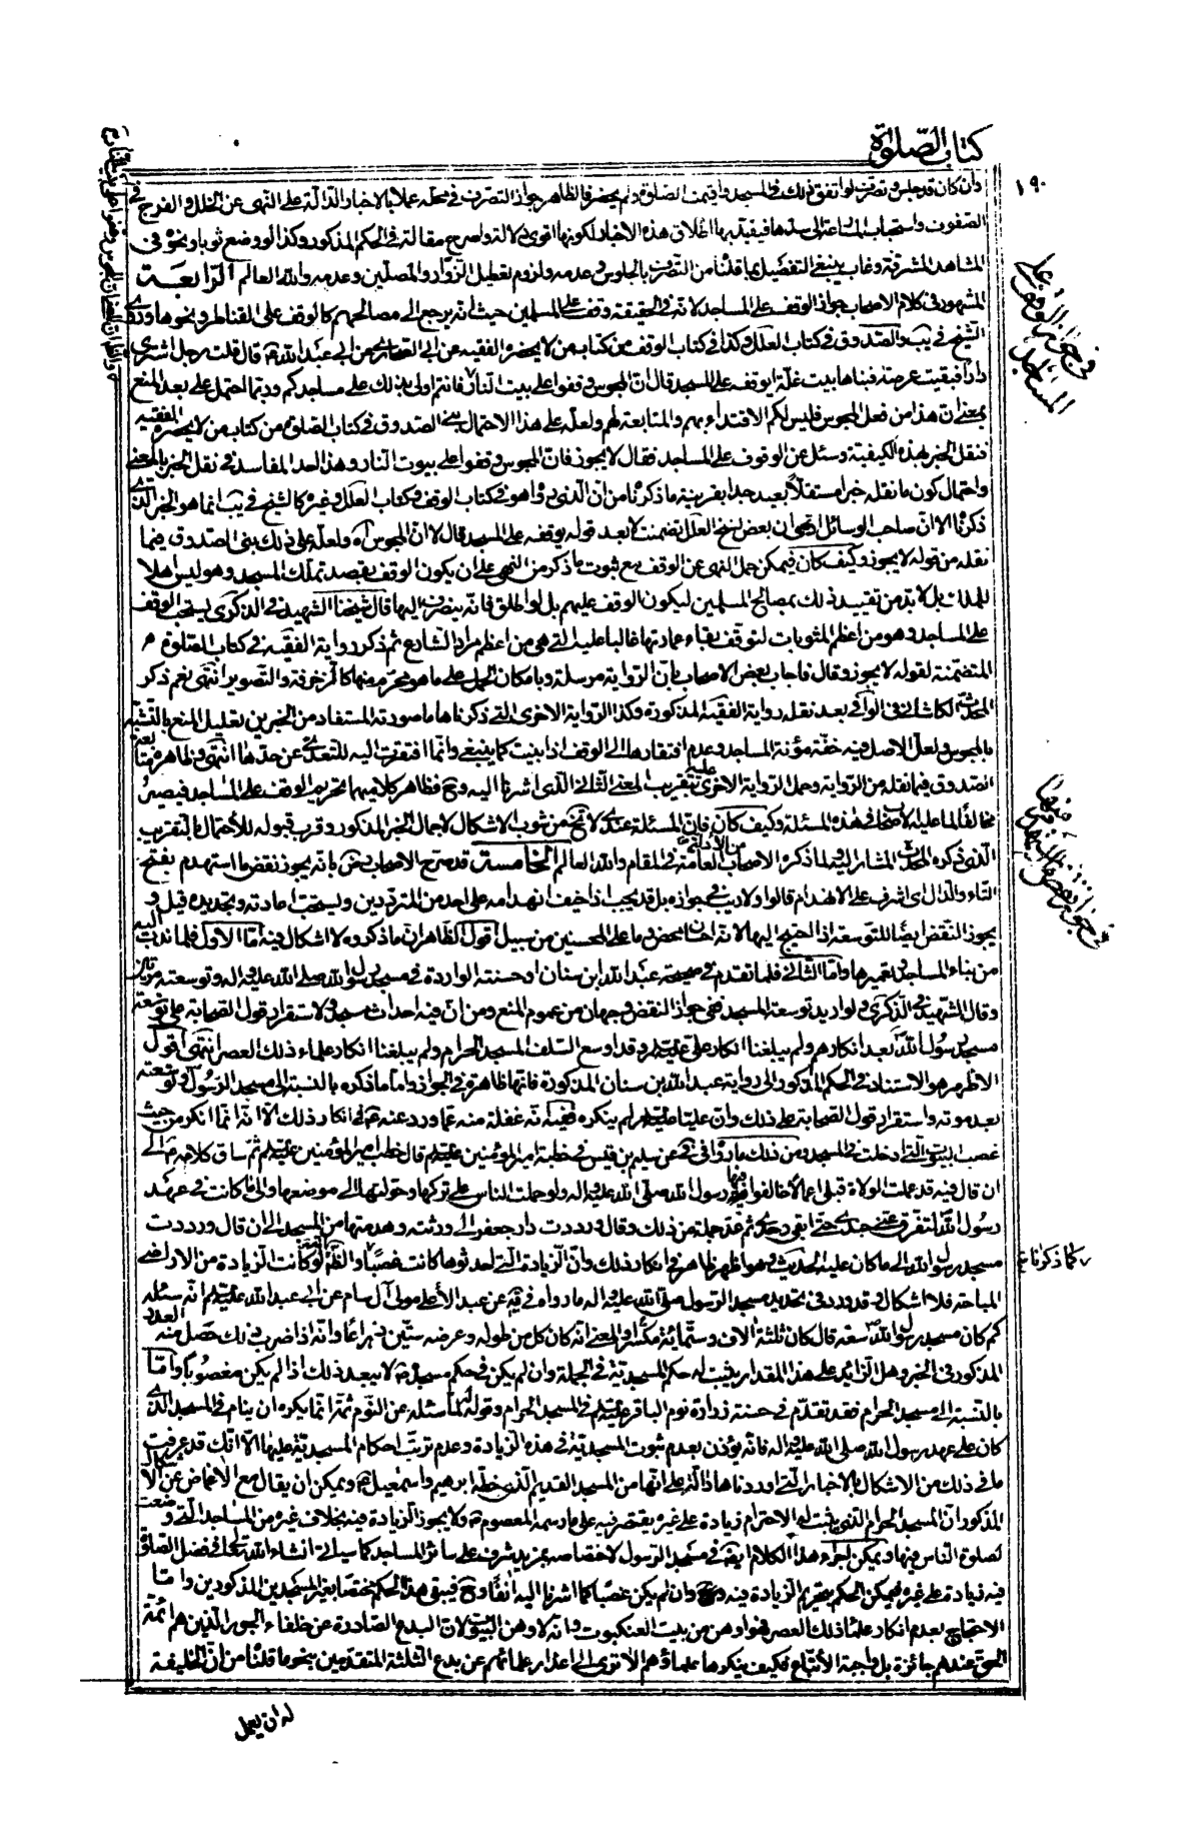 كتاب الصلوة
١٩٠
وان كان قد جلس وتصرف لو اتفق ذلك في المسجد واقيمت الصلوة ولم يحضر فالظاهر جواز التصرف في محله عملا بالاخبار الدالة على النهى عن الخلل والفرج في
الصفوف واستحباب المساعة الى سدها فيقيد بها اطلاق هذه الاخبار لكونها اقوى دلالة واصرح مقالة في الحكم المذكور وكذا لو وضع ثوبا ونحوه في
المشاهد المشرفة وغاب ينبغي التفصيل بما قلنا من التصرف بالجلوس وعدمه ولزوم تعطيل الزوار والمصلين وعدمه والله العالم الرابعة
المشهور في كلام الاصحاب جواز الوقف على المساجد لانه في الحقيقة وقف على المسلمين حيث انه يرجع الى مصالحهم كالوقف على القناطر ونحوها وروى
الشيخ في يب والصدوق في كتاب العلل وكذا في كتاب الوقف من كتاب من لا يحضره الفقيه عن ابى الصحارى عن ابى عبد الله ع قال قلت رجل اشترى
دارا فبقيت عرصة فبناها بيت غلة ايوقفه على المسجد قال ان المجوس وقفوا على بيت النار فانتم اولى بذلك على مساجدكم وربما احتمل على بعد المنع
بمعنى ان هذا من فعل المجوس فليس لكم الاقتداء بهم والمتابعة لهم ولعله على هذا الاحتمال بنى الصدوق في كتاب الصلوة من كتاب من لا يحضره الفقيه
فنقل الخبر بهذه الكيفية وسئل عن الوقوف على المساجد فقال لا يجوز فان المجوس وقفوا على بيوت النار وهذا احد المفاسد في نقل الخبر بالمعنى
واحتمال كون ما نقله خبرا مستقلا بعيد جدا بقرينة ما ذكرنا من ان الذي رواه هو في كتاب الوقف وكتاب العلل وغيره كالشيخ في يب انما هو الخبر الذي
ذكرناه الا ان صاحب الوسائل ادعى ان بعض نسخ العلل تضمنت لا بعد قوله يوقفه على المسجد قال لا ان المجوس آه ولعله على ذلك بنى الصدوق فيما
نقله من قوله لا يجوز وكيف كان فيمكن حمل النهى عن الوقف مع ثبوت ما ذكر من النهى على ان يكون الوقف بقصد تملك المسجد وهو ليس اهلا
للملك بل لابد من تقييد ذلك بمصالح المسلمين ليكون الوقف عليهم بل لو اطلق فانه ينصرف اليها قال شيخنا الشهيد في الذكرى يستحب الوقف
على المساجد وهو من اعظم المثوبات لتوقف بقاء عمارتها غالبا عليه التي هي من اعظم مراد الشارع ثم ذكر رواية الفقيه في كتاب الصلوة
المتضمنة لقوله لا يجوز وقال فاجاب بعض الاصحاب بان الرواية مرسلة وبامكان الحمل على ما هو محرم منها كالزخرفة والتصوير انتهى نعم ذكر
المحدث الكاشاني في الوافي بعد نقله رواية الفقيه المذكورة وكذا الرواية الاخرى التي ذكرناها ما صورته المستفاد من الخبرين تعليل المنع بالتشبه
بالمجوس ولعل الاصل فيه خفة مؤنة المساجد وعدم افتقارها الى الوقف اذا بنيت كما ينبغي وانما افتقرت اليه للتعدى عن حدها انتهى وظاهره متابعة
الصدوق فيما نقله من الرواية وحمل الرواية الاخرى عليه بتقريب المعنى الثاني الذي اشرنا اليه وح فظاهر كلاميهما تحريم الوقف على المساجد فيصير
مخالفا لما عليه الاصحاب في هذه المسئلة وكيف كان فان المسئلة عندى لا تخ من شوب الاشكال لاجمال الخبر المذكور وقرب قبوله للاحتمال بالتقريب
الذي ذكره المحدث المشار اليه ولما ذكره الاصحاب من الادلة العامة في المقام والله العالم الخامسة قد صرح الاصحاب رض بانه يجوز نقض ما استهدم بفتح
التاء والدال اى اشرف على الانهدام قالوا ولا ريب في جوازه بل قد يجب اذا خيف انهدامه على احد من المترددين ويستحب اعادته وتجديده قيل و
يجوز النقض ايضا للتوسعة اذا احتيج اليها لانه احسان محض وما على المحسنين من سبيل اقول الظاهر ان ما ذكروه لا اشكال فيه اما الاول فلما ندب اليه
من بناء المساجد وتعميرها واما الثاني فلما تقدم في صحيحة عبد الله ابن سنان او حسنته الواردة في مسجد رسول الله صلى الله عليه واله وتوسعته مرتين
وقال الشهيد في الذكرى ولو اريد توسعة المسجد ففي جواز النقض وجهان من عموم المنع ومن ان فيه احداث مسجد ولاستقرار قول الصحابة على توسعة
مسجد رسول الله ص بعد انكارهم ولم يبلغنا انكار على عليه السلم وقد اوسع السلف المسجد الحرام ولم يبلغنا انكار علماء ذلك العصر انتهى اقول
الاظهر هو الاستناد في الحكم المذكور الى رواية عبد الله بن سنان المذكورة فانها ظاهرة في الجواز واما ما ذكره بالنسبة الى مسجد الرسول ص وتوسعته
بعد موته واستقرار قول الصحابة على ذلك وان عليا عليه السلم لم ينكره ففيه انه غفلة منه عما ورد عنه ع في انكار ذلك الا انه انما انكره من حيث
غصب البيوت التي ادخلت في المسجد ومن ذلك ما رواه في في عن سليم بن قيس في خطبة امير المؤمنين عليه السلم قال خطب امير المؤمنين عليه السلم ثم ساق كلامه ع الى
ان قال فيه قد عملت الولاة قبلى اعمالا خالفوا فيها رسول الله صلى الله عليه واله ولو حملت الناس على تركها وحولتها الى موضعها والى ما كانت في عهد
رسول الله ص لتفرق عنى جندى حتى ابقى وحدى ثم عد جملة من ذلك وقال ورددت دار جعفر الى ورثته وهدمتها من المسجد الى ان قال ورددت
مسجد رسول الله الى ما كان عليه الحديث وهو اظهر ظاهر في انكار ذلك وان الزيادة التي احدثوها كانت غصبا والظ انه لو كانت الزيادة من الاراضى
كما ذكرناه
المباحة فلا اشكال وقد ورد في تحديد مسجد الرسول صلى الله عليه واله ما رواه في يه عن عبد الاعلى مولى آل سام عن ابى عبد الله عليه السلم انه سئله
كم كان مسجد رسول الله ص سعة قال كان ثلثة الاف وستمائة مكسرا والمعنى انه كان كل من طوله وعرضه ستين ذراعا وانه اذا ضرب ذلك حصل منه العدد
المذكور في الخبر وهل الزائد على هذا المقدار يثبت له حكم المسجدية في الجملة وان لم يكن في حكم مسجده ص لا يبعد ذلك اذا لم يكن مغصوبا واما
بالنسبة الى مسجد الحرام فقد تقدم في حسنة زرارة نوم الباقر عليه السلم في المسجد الحرام وقوله لما سئله عن النوم ثمة انما يكره ان ينام في المسجد الذي
كان على عهد رسول الله صلى الله عليه واله فانه يؤذن بعدم ثبوت المسجدية في هذه الزيادة وعدم ترتب احكام المسجدية عليها الا انك قد عرفت
ما في ذلك من الاشكال بالاخبار التي اوردناها دالة على انها من المسجد القديم الذي خطه ابرهيم واسمعيل ع ويمكن ان يقال مع الاغماض عن الاشكال
المذكور ان المسجد الحرام الذي يثبت له الاحترام زيادة على غيره يقتصر فيه على ما رسمه المعصوم ع ولا يجوز الزيادة فيه بخلاف غيره من المساجد التي وضعت
لصلوة الناس فيها ويمكن اجراء هذا الكلام ايضا في مسجد الرسول لاختصاصه بمزيد شرف على سائر المساجد كما سيأتي انشاء الله تعالى في فضل الصلوة
فيه زيادة على غيره فيمكن الحكم بتحريم الزيادة فيه وان لم يكن غصبا كما اشرنا اليه آنفا وح فيبقى هذا الحكم مختصا بغير المسجدين المذكورين واما
الاحتجاج بعدم انكار علماء ذلك العصر فهو اوهن من بيت العنكبوت وانه لاوهن البيوت لان البدع الصادرة عن خلفاء الجور الذين هم ائمة
الحق عندهم جائزة بل واجبة الاتباع فكيف ينكرها علماؤهم الا ترى الى اعذار علمائهم عن بدع الثلثة المتقدمين بنحو ما قلنا من ان الخليفة
له ان يعمل
في جواز الوقف على المساجد
في جواز نقض المستهدم